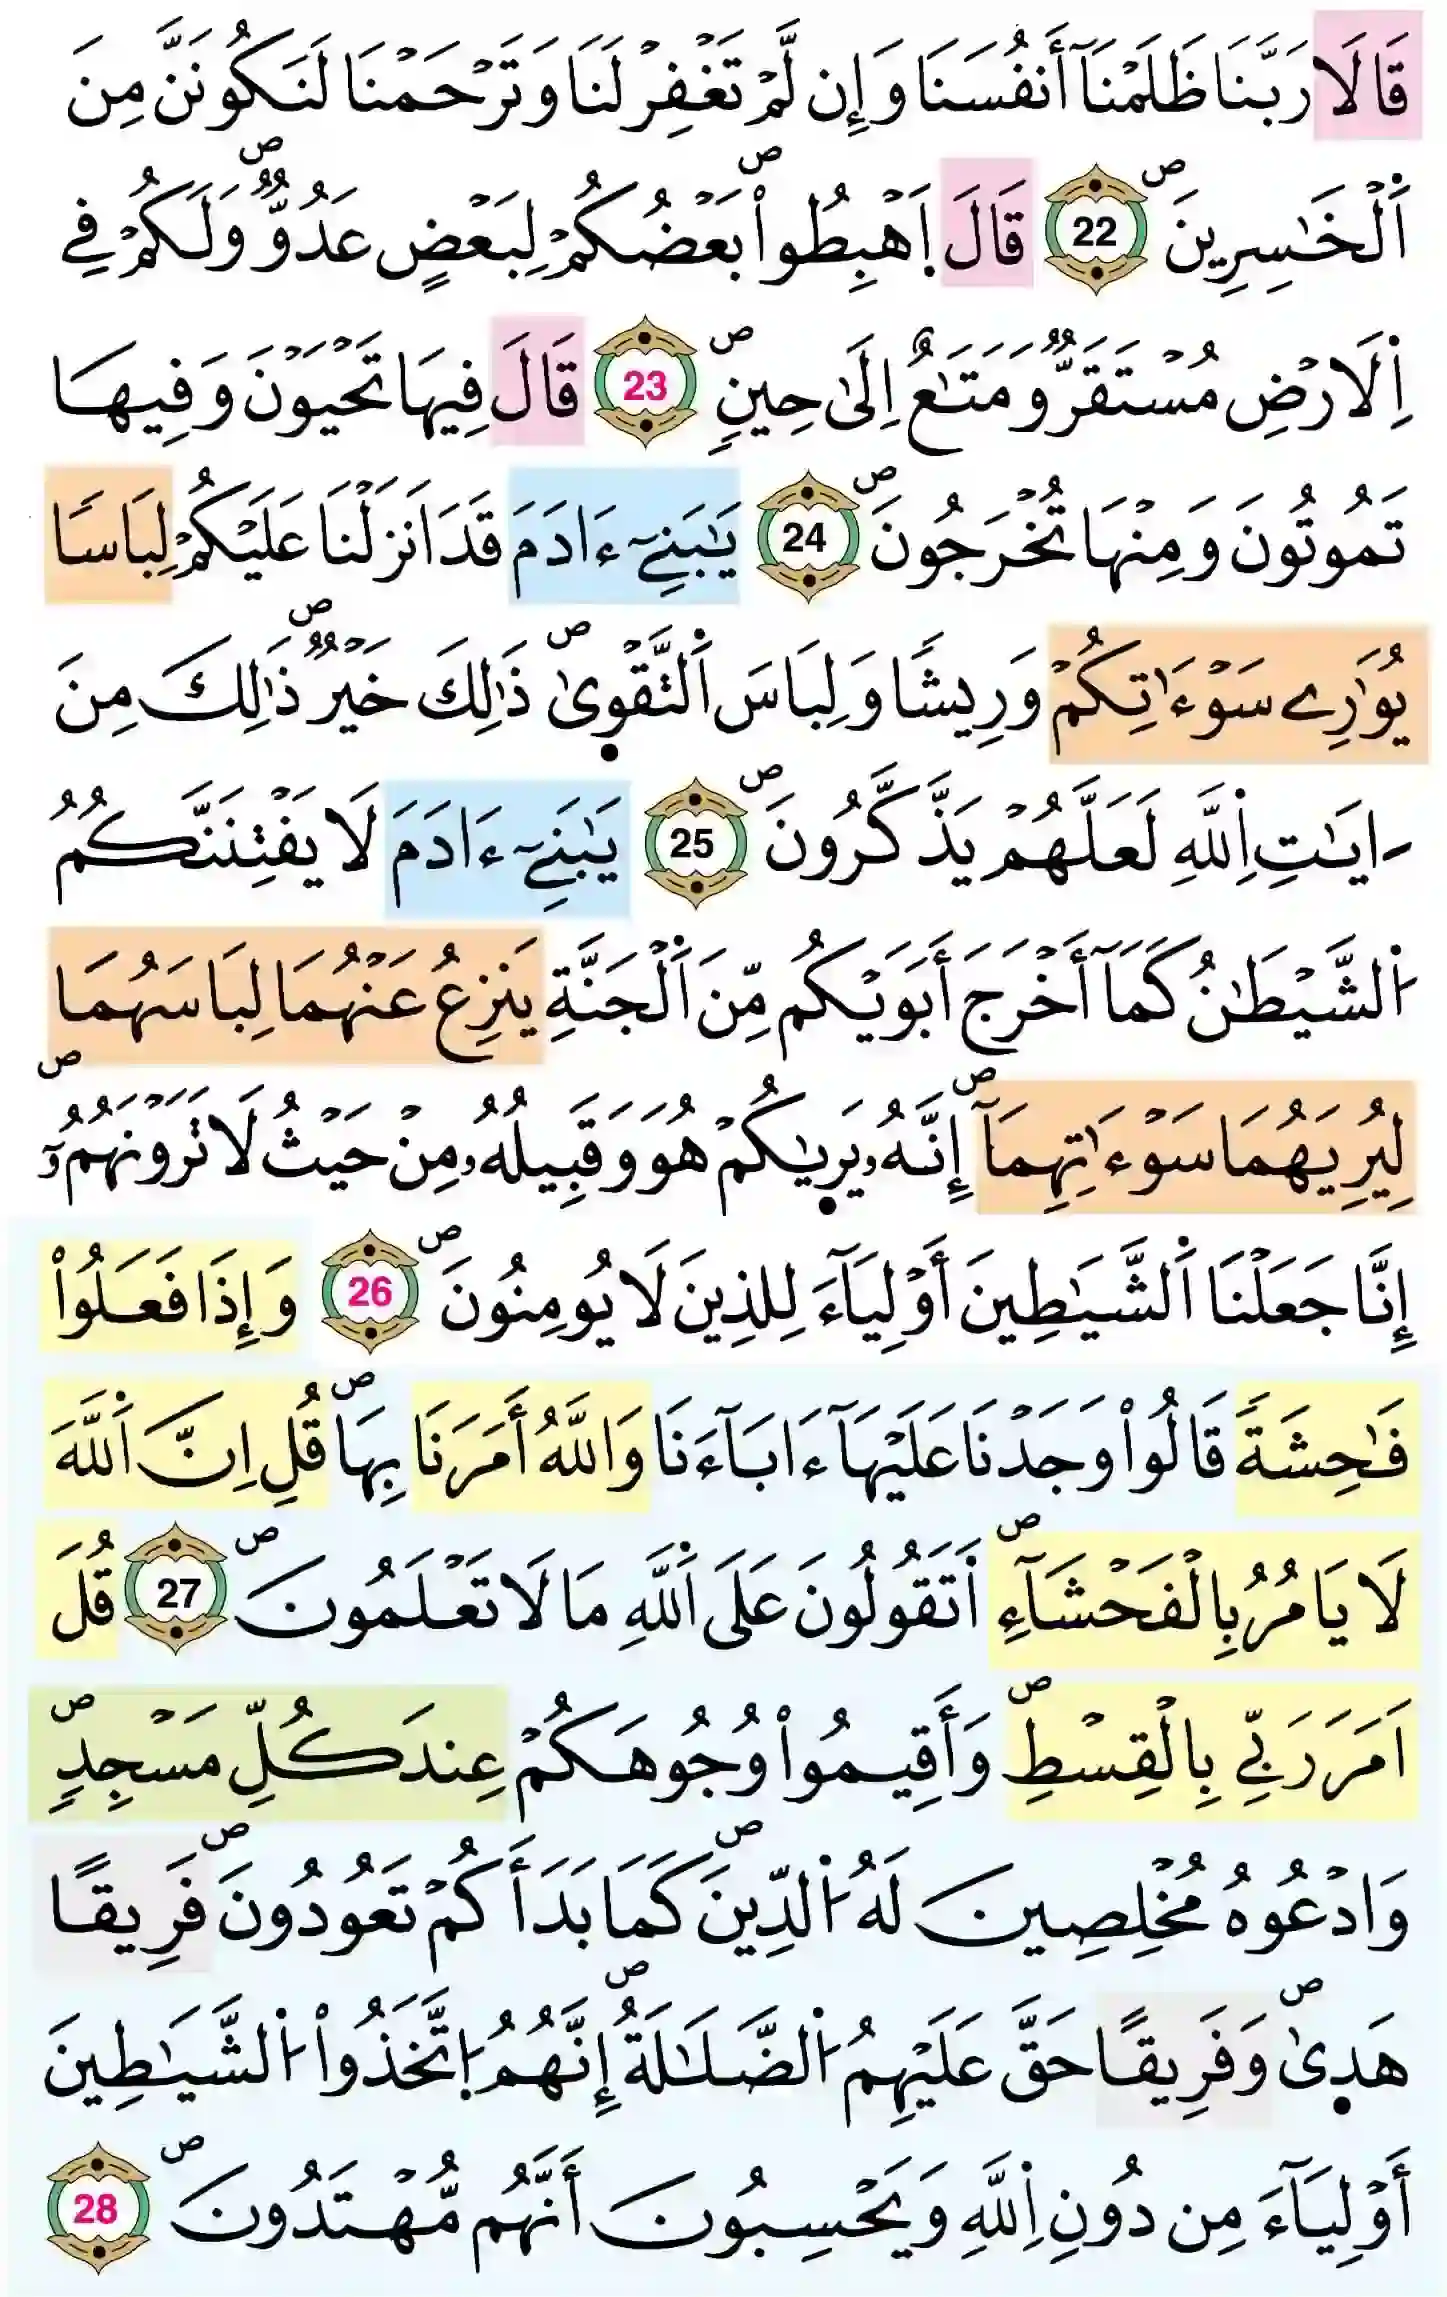 قَالَا رَبَّنَا ظَلَمْنَآ أَنفُسَنَا وَإِن لَّمْ تَغْفِرْ لَنَا وَتَرْحَمْنَا لَنَكُونَنَّ مِنَ
اَ۬لْخَٰسِرِينَۖ 22 قَالَ اَ۪هْبِطُواْ بَعْضُكُمْ لِبَعْضٍ عَدُوّٞۖ وَلَكُمْ فِے
اِ۬لَارْضِ مُسْتَقَرّٞ وَمَتَٰعٌ اِلَىٰ حِينٖۖ 23 قَالَ فِيهَا تَحْيَوْنَ وَفِيهَا
تَمُوتُونَ وَمِنْهَا تُخْرَجُونَۖ 24 يَٰبَنِےٓ ءَادَمَ قَدَ اَنزَلْنَا عَلَيْكُمْ لِبَاسٗا
يُوَٰرِے سَوْءَٰتِكُمْ وَرِيشٗا وَلِبَاسَ اَ۬لتَّقْو۪يٰۖ ذَٰلِكَ خَيْرٞۖ ذَٰلِكَ مِنَ
ـَايَٰتِ اِ۬للَّهِ لَعَلَّهُمْ يَذَّكَّرُونَۖ 25 يَٰبَنِےٓ ءَادَمَ لَا يَفْتِنَنَّكُمُ
اُ۬لشَّيْطَٰنُ كَمَآ أَخْرَجَ أَبَوَيْكُم مِّنَ اَ۬لْجَنَّةِ يَنزِعُ عَنْهُمَا لِبَاسَهُمَا
لِيُرِيَهُمَا سَوْءَٰتِهِمَآۖ إِنَّهُۥ يَر۪يٰكُمْ هُوَ وَقَبِيلُهُۥ مِنْ حَيْثُ لَا تَرَوْنَهُمُۥٓۖ
إِنَّا جَعَلْنَا اَ۬لشَّيَٰطِينَ أَوْلِيَآءَ لِلذِينَ لَا يُومِنُونَۖ 26 وَإِذَا فَعَلُواْ
فَٰحِشَةٗ قَالُواْ وَجَدْنَا عَلَيْهَآ ءَابَآءَنَا وَاللَّهُ أَمَرَنَا بِهَاۖ قُلِ اِنَّ اَ۬للَّهَ
لَا يَامُرُ بِالْفَحْشَآءِۖ اَتَقُولُونَ عَلَى اَ۬للَّهِ مَا لَا تَعْلَمُونَۖ 27 قُلَ
اَمَرَ رَبِّے بِالْقِسْطِۖ وَأَقِيمُواْ وُجُوهَكُمْ عِندَ كُلِّ مَسْجِدٖۖ
وَادْعُوهُ مُخْلِصِينَ لَهُ اُ۬لدِّينَۖ كَمَا بَدَأَكُمْ تَعُودُونَۖ فَرِيقاً
هَد۪يٰۖ وَفَرِيقاً حَقَّ عَلَيْهِمُ اُ۬لضَّلَٰلَةُۖ إِنَّهُمُ اُ۪تَّخَذُواْ اُ۬لشَّيَٰطِينَ
أَوْلِيَآءَ مِن دُونِ اِ۬للَّهِ وَيَحْسِبُونَ أَنَّهُم مُّهْتَدُونَۖ 28